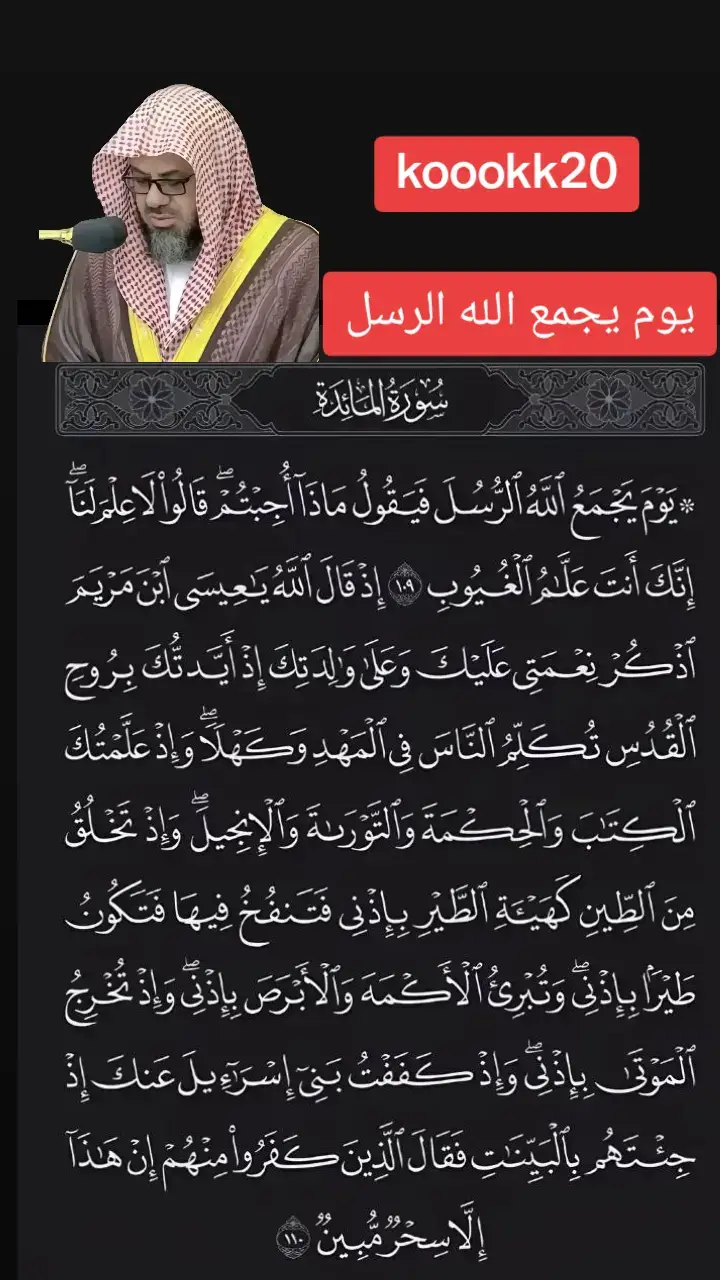 koookk20
يوم يجمع الله الرسل
سُورَةُ المَائِدَةِ
۞ يَوْمَ يَجْمَعُ ٱللَّهُ ٱلرُّسُلَ فَيَقُولُ مَاذَآ أُجِبْتُمْۖ قَالُوا۟ لَا عِلْمَ لَنَآۖ
إِنَّكَ أَنتَ عَلَّٰمُ ٱلْغُيُوبِ ١٠٩ إِذْ قَالَ ٱللَّهُ يَٰعِيسَى ٱبْنَ مَرْيَمَ
ٱذْكُرْ نِعْمَتِى عَلَيْكَ وَعَلَىٰ وَٰلِدَتِكَ إِذْ أَيَّدتُّكَ بِرُوحِ
ٱلْقُدُسِ تُكَلِّمُ ٱلنَّاسَ فِى ٱلْمَهْدِ وَكَهْلًاۖ وَإِذْ عَلَّمْتُكَ
ٱلْكِتَٰبَ وَٱلْحِكْمَةَ وَٱلتَّوْرَىٰةَ وَٱلْإِنجِيلَۖ وَإِذْ تَخْلُقُ
مِنَ ٱلطِّينِ كَهَيْـَٔةِ ٱلطَّيْرِ بِإِذْنِى فَتَنفُخُ فِيهَا فَتَكُونُ
طَيْرًۢا بِإِذْنِىۖ وَتُبْرِئُ ٱلْأَكْمَهَ وَٱلْأَبْرَصَ بِإِذْنِىۖ وَإِذْ تُخْرِجُ
ٱلْمَوْتَىٰ بِإِذْنِىۖ وَإِذْ كَفَفْتُ بَنِىٓ إِسْرَٰٓءِيلَ عَنكَ إِذْ
جِئْتَهُم بِٱلْبَيِّنَٰتِ فَقَالَ ٱلَّذِينَ كَفَرُوا۟ مِنْهُمْ إِنْ هَٰذَآ
إِلَّا سِحْرٌ مُّبِينٌ ١١٠